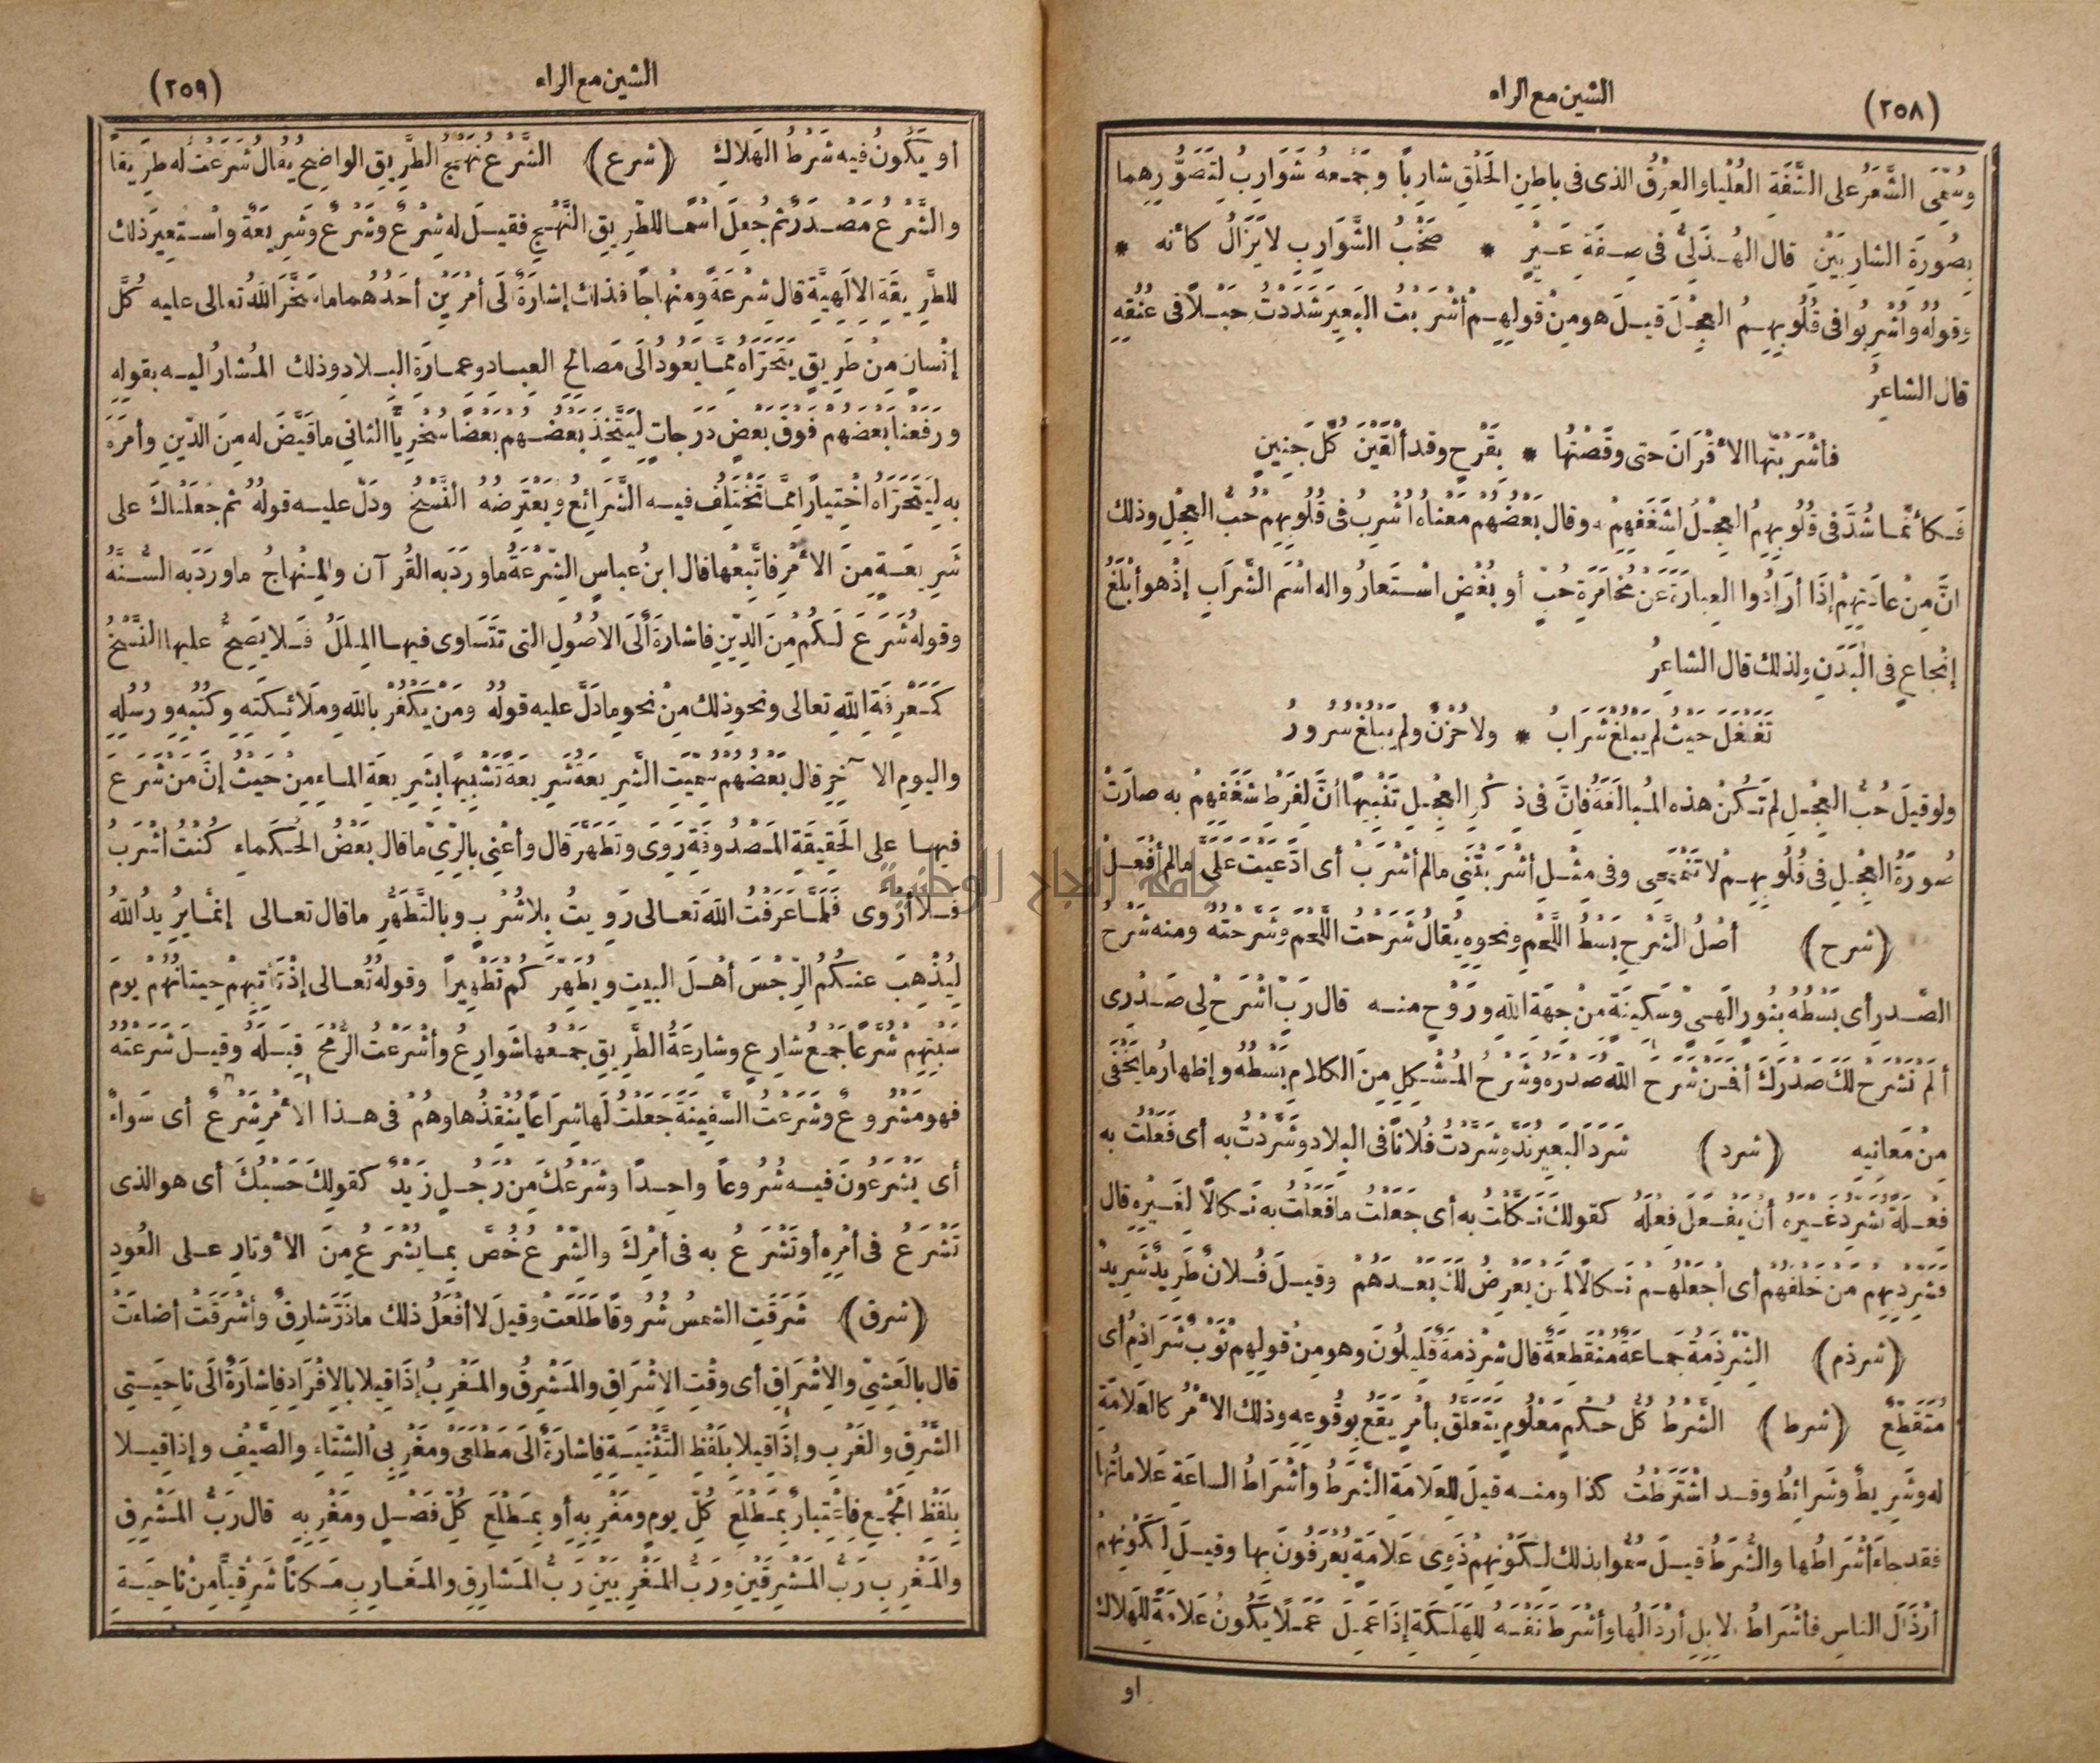 (٢٥٨)
الشين مع الراء
وسُمِّىَ الشَّعَرُ على الشَّفَةِ العُلْيا والعِرْقُ الذى فى باطِنِ الحَلْقِ شارِبًا وجَمْعهُ شَوَارِبُ لِتَصَوُّرِهِما
بصُورَةِ الشارِبَيْنِ قال الهُذَلِىُّ فى صِفَةِ عَيْرٍ * صَخْبُ الشَّوَارِبِ لايَزَالُ كأنه *
وقولُه وأُشْرِبُوا فى قُلُوبِهِمُ العِجْلَ قيلَ هو مِنْ قولِهِمْ أشْرَبْتُ البَعِيرَ شَدَدْتُ حَبْلًا فى عُنُقِهِ
قال الشاعِرُ
فأشْرَبْتُها الأقْرَانَ حتى وقَصْتُها * بِقَرْحٍ وقد ألْقَيْنَ كُلَّ جَنِينٍ
فَكأنَّما شُدَّ فى قُلُوبِهِمُ العِجْلُ لِشَغَفِهِمْ، وقال بَعْضُهُم مَعْناه أُشْرِبَ فى قُلُوبِهِمْ حُبُّ العِجْلِ وذلك
انَّ مِنْ عادَتِهِمْ إذَا أرَادُوا العِبارَةَ عَنْ مُخامَرَةِ حُبٍّ أو بُغْضٍ اسْتَعارُوا له اسْمَ الشَّرَابِ إذْ هو أبْلَغُ
إنْجاعٍ فى البَدَنِ ولذلك قال الشاعِرُ
تَغَلْغَلَ حَيْثُ لم يَبْلُغْ شَرَابُ * ولا حُزْنٌ ولم يَبْلُغْ سُرُورُ
ولو قيلَ حُبُّ العِجْلِ لم تَكُنْ هذه المُبالَغَةُ فانَّ فى ذِكْرِ العِجْلِ تَنْبِيهًا أنَّ لِفَرْطِ شَغَفِهِمْ به صارَتْ
صُورَةُ العِجْلِ فى قُلُوبِهِمْ لا تَنْمَحِى وفى مِثْلِ أشْرَبْتَنِى مالم أشْرَبْ أى ادَّعَيْتَ عَلَىَّ مالم أفْعَلْ
(شرح) أصْلُ الشَّرْحِ بَسْطُ اللَّحْمِ ونحوِه يُقالُ شَرَحْتُ اللَّحْمَ وشَرَّحْتُهُ ومنه شَرْحُ
الصَّدرِ أى بَسْطُهُ بِنُورٍ الَهِىٍّ وسَكِينَةٍ مِنْ جِهَةِ اللهِ ورَوْحٍ منه قال رَبِّ اشْرَحْ لِى صَدْرِى
ألَمْ نَشْرَحْ لَكَ صَدْرَكَ أفَمَنْ شَرَحَ اللهُ صَدْرَهُ وشَرْحُ المُشْكِلِ مِنَ الكلامِ بَسْطُهُ وإظهارُ ما يَخْفَى
مِنْ مَعانِيهِ (شرد) شَرَدَ البَعِيرُ نَدَّ وشَرَّدْتُ فُلانًا فى البِلادِ وشَرَّدْتُ به أى فَعَلْتُ به
فِعْلَةً تُشَرِّدُ غَيْرَهُ أن يَفْعَلَ فِعْلَهُ كقولك نَكَّلْتُ به أى جَعَلْتُ ما فَعَلْتُ به نَكالًا لِغَيْرِه قال
فَشَرِّدْ بِهِمْ مَنْ خَلْفَهُمْ أى اجْعَلْهُمْ نَكالًا لِمَنْ يَعْرِضُ لَكَ بَعْدَهُمْ وقيلَ فُلانٌ طَرِيدٌ شَرِيدٌ
(شرذم) الشِّرْذِمَةُ جَماعَةٌ مُنْقَطِعَةٌ قال شِرْذِمَةٌ قَلِيلُونَ وهو مِنْ قولِهِمْ ثَوْبٌ شَرَاذِمُ أى
مُتَقَطِّعٌ (شرط) الشَّرْطُ كُلُّ حُكْمٍ مَعْلُومٍ يَتَعَلَّقُ بأمْرٍ يَقَعُ بِوُقُوعِه وذلك الأمْرُ كالعَلامَةِ
له وشَرِيطٌ وشَرائِطُ وقد اشْتَرَطْتُ كذا ومنه قيلَ للعَلامَةِ الشَّرَطُ وأشْرَاطُ الساعَةِ عَلاماتُها
فقد جاءَ أشْرَاطُها والشُّرَطُ قيلَ سُمُّوا بذلك لِكَوْنِهِمْ ذَوِى عَلامَةٍ يُعْرَفُونَ بِها وقيلَ لِكَوْنِهِمْ
أرْذَالَ الناسِ فأشْرَاطُ الابِلِ أرْذَالُها وأشْرَطَ نَفْسَهُ لِلهَلَكَةِ إذَا عَمِلَ عَمَلًا يَكُونُ عَلامَةً لِلْهَلاكِ
او
الشين مع الراء
(٢٥٩)
أو يَكُونُ فيه شَرْطُ الهَلاكِ (شرع) الشَّرْعُ نَهْجُ الطَّرِيقِ الواضِحِ يُقالُ شَرَعْتُ له طَرِيقًا
والشَّرْعُ مَصْدَرٌ ثم جُعِلَ اسْمًا للطَّرِيقِ النَّهْجِ فقيلَ له شِرْعٌ وشَرْعٌ وشَرِيعَةٌ واسْتُعِيرَ ذلك
للطَّرِيقَةِ الالَهِيَّةِ قال شِرْعَةً ومِنْهاجًا فذلك إشارَةٌ الَى أمْرَيْنِ أحَدُهُما ما سَخَّرَ اللهُ تعالى عليه كُلَّ
إنْسانٍ مِنْ طَرِيقٍ يَتَحَرَّاه مِمَّا يَعُودُ الَى مَصَالِحِ العِبادِ وعِمارَةِ البِلادِ وذلك المُشارُ اليه بقولِهِ
ورَفَعْنا بَعْضَهُمْ فَوْقَ بَعْضٍ دَرَجاتٍ لِيَتَّخِذَ بَعْضُهُمْ بَعْضًا سُخْرِيًّا الثانى ما قَيَّضَ له مِنَ الدِّينِ وأمَرَه
به لِيَتَحَرَّاه اخْتِيارًا مِمَّا تَخْتَلِفُ فيه الشَّرَائِعُ ويَعْتَرِضُهُ النَّسْخُ ودَلَّ عليه قولُهُ ثم جَعَلْناكَ على
شَرِيعَةٍ مِنَ الأمْرِ فاتَّبِعْها قال ابنُ عباسٍ الشِّرْعَةُ ما ورَدَ به القُرآن والمِنْهاجُ ما ورَدَ به السُّنَّةُ
وقولُه شَرَعَ لَكُمْ مِنَ الدِّينِ فاشارَةٌ الَى الأصُولِ التى تَتَسَاوى فيها المِلَلُ فَلا يَصِحُّ عليها النَّسْخُ
كَمَعْرِفَةِ اللهِ تعالى ونحو ذلك مِنْ نحو ما دَلَّ عليه قولُهُ ومَنْ يَكْفُرْ باللهِ ومَلائِكَتِهِ وكُتُبِهِ ورُسُلِهِ
واليومِ الاٰخِرِ قال بَعْضُهُمْ سُمِّيَتِ الشَّرِيعَةُ شَرِيعَةً تَشْبِيهًا بِشَرِيعَةِ الماءِ مِنْ حَيْثُ إنَّ مَنْ شَرَعَ
فيها على الحَقِيقَةِ المَصْدُوقَةِ رَوِىَ وتَطَهَّرَ قال وأعْنِى بالرِّىِّ ما قال بَعْضُ الحُكَماءِ كُنْتُ أشْرَبُ
فَلا أرْوَى فَلَمَّا عَرَفْتُ اللهَ تعالى رَوِيتُ بِلا شُرْبٍ وبالتَّطَهُّرِ ما قال تعالى إنَّما يُرِيدُ اللهُ
لِيُذْهِبَ عنكُمُ الرِّجْسَ أهْلَ البيتِ ويُطَهِّرَكُمْ تَطْهِيرًا وقولُهُ تعالى إذْ تَأْتِيهِمْ حِيتانُهُمْ يومَ
سَبْتِهِمْ شُرَّعًا جَمْعُ شارِعٍ وشارِعَةُ الطَّرِيقِ جَمْعُها شَوارِعُ وأشْرَعْتُ الرُّمْحَ قِبَلَهُ وقيلَ شَرَعْتُه
فهو مَشْرُوعٌ وشَرَعْتُ السَّفِينَةَ جَعَلْتُ لَها شِرَاعًا يُنْقِذُها وهُمْ فى هذا الأمْرِ شَرْعٌ أى سَواءٌ
أى يَشْرَعُونَ فيه شُرُوعًا واحِدًا وشَرْعُكَ مِنْ رَجُلٍ زَيْدٌ كقولِكَ حَسْبُكَ أى هو الذى
تَشْرَعُ فى أمْرِهِ أو تَشْرَعُ به فى أمْرِكَ والشِّرْعُ خُصَّ بِما يُشْرَعُ مِنَ الأوتارِ على العُودِ
(شرق) شَرَقَتِ الشمسُ شُرُوقًا طَلَعَتْ وقيلَ لا أفْعَلُ ذلك ما ذَرَّ شارِقٌ وأشْرَقَتْ أضاءَتْ
قال بالعَشِىِّ والاِشْرَاقِ أى وقْتِ الاِشْرَاقِ والمَشْرِقُ والمَغْرِبُ إذَا قيلا بالاِفْرَادِ فاشارَةٌ الَى ناحِيَتِى
الشَّرْقِ والغَرْبِ وإذَا قيلا بِلَفْظِ التَّثْنِيَةِ فاشارَةٌ الَى مَطْلَعَىْ ومَغْرِبَىِ الشِّتاءِ والصَّيْفِ وإذا قيلا
بِلَفْظِ الجَمْعِ فاعْتِبارٌ بِمَطْلَعِ كُلِّ يومٍ ومَغْرِبِهِ أو بِمَطْلَعِ كُلِّ فَصْلٍ ومَغْرِبِهِ قال رَبُّ المَشْرِقِ
والمَغْرِبِ رَبُّ المَشْرِقَيْنِ ورَبُّ المَغْرِبَيْنِ رَبُّ المَشارِقِ والمَغارِبِ مَكانًا شَرْقِيًّا مِنْ ناحِيَةِ
جامعة النجاح الوطنية